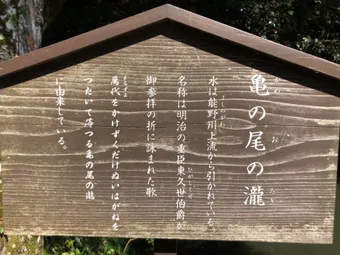 亀の尾の瀧
水は能野川上流から引かれている。
名称は明治の重臣東久世伯爵が
御参拝の折に詠まれた歌
萬代をかけてくだけぬいはがねを
つたいて落つる亀の尾の瀧
に由来している。